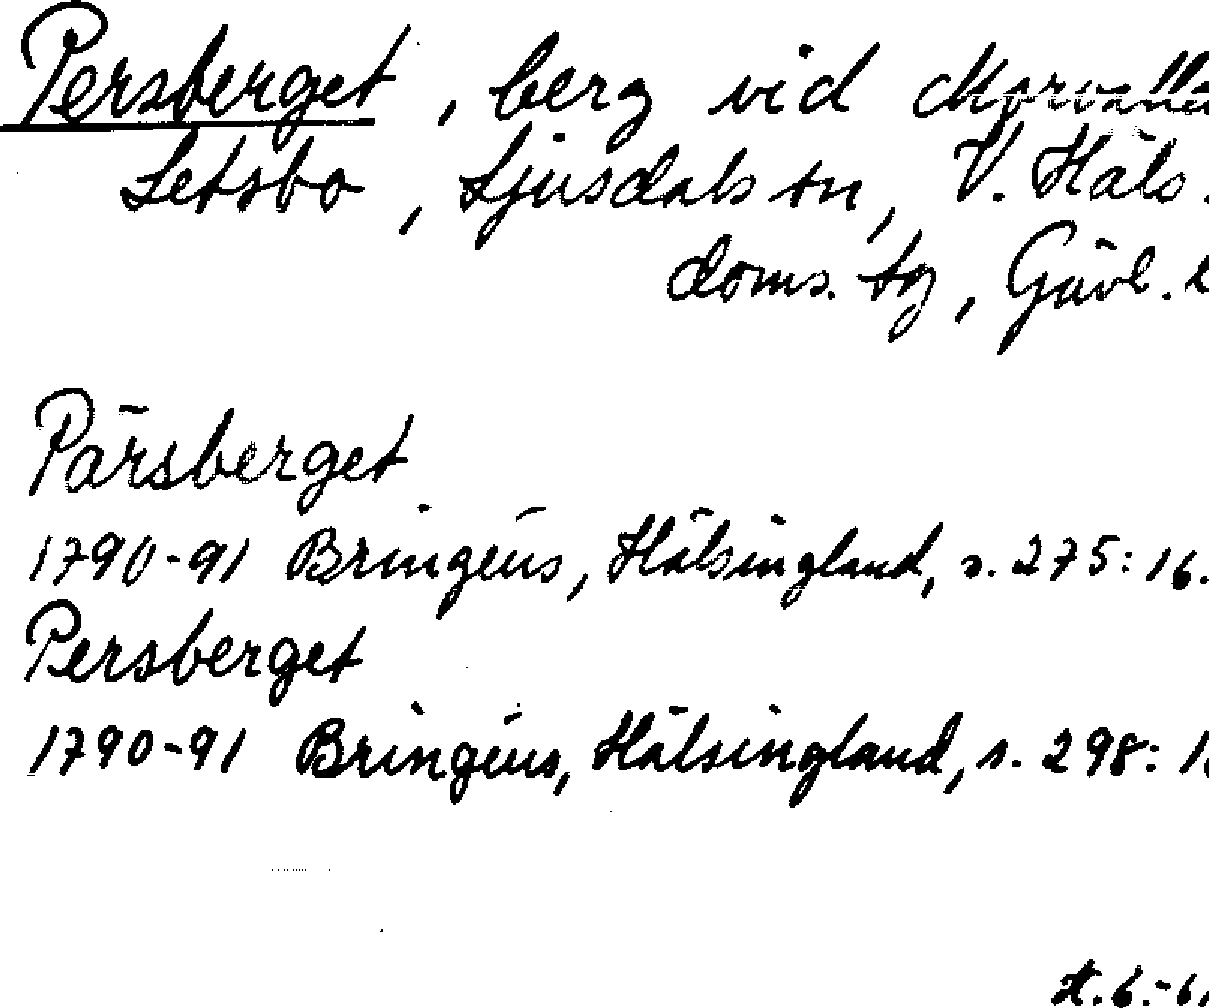 Persberget, berg vid
Letsbo, Ljusdals sn, V. Häls.
doms. tg, Gävl. l
Pärsberget
1790-91 Bringéus, Hälsingland, s. 275: 16.
Persberget
1790-91 Bringéus, Hälsingland, s. 298: